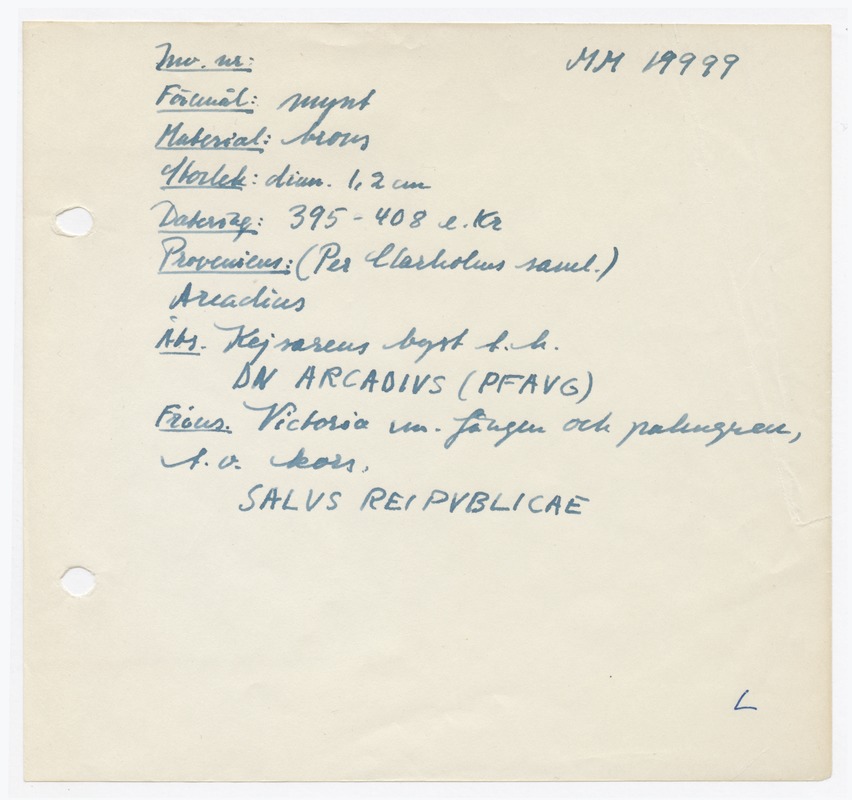 Inv. nr: MM 19999
Föremål: mynt
Material: brons
Storlek: diam. 1,2 cm
Datering: 395-408 e.Kr
Proveniens: (Per Clarholms saml.)
Arcadius
Åts. Kejsarens byst t.h.
DN ARCADIVS (PFAVG)
Fråns. Victoria m. fången och palmgren,
t.v. kors,
SALVS REIPVBLICAE
L